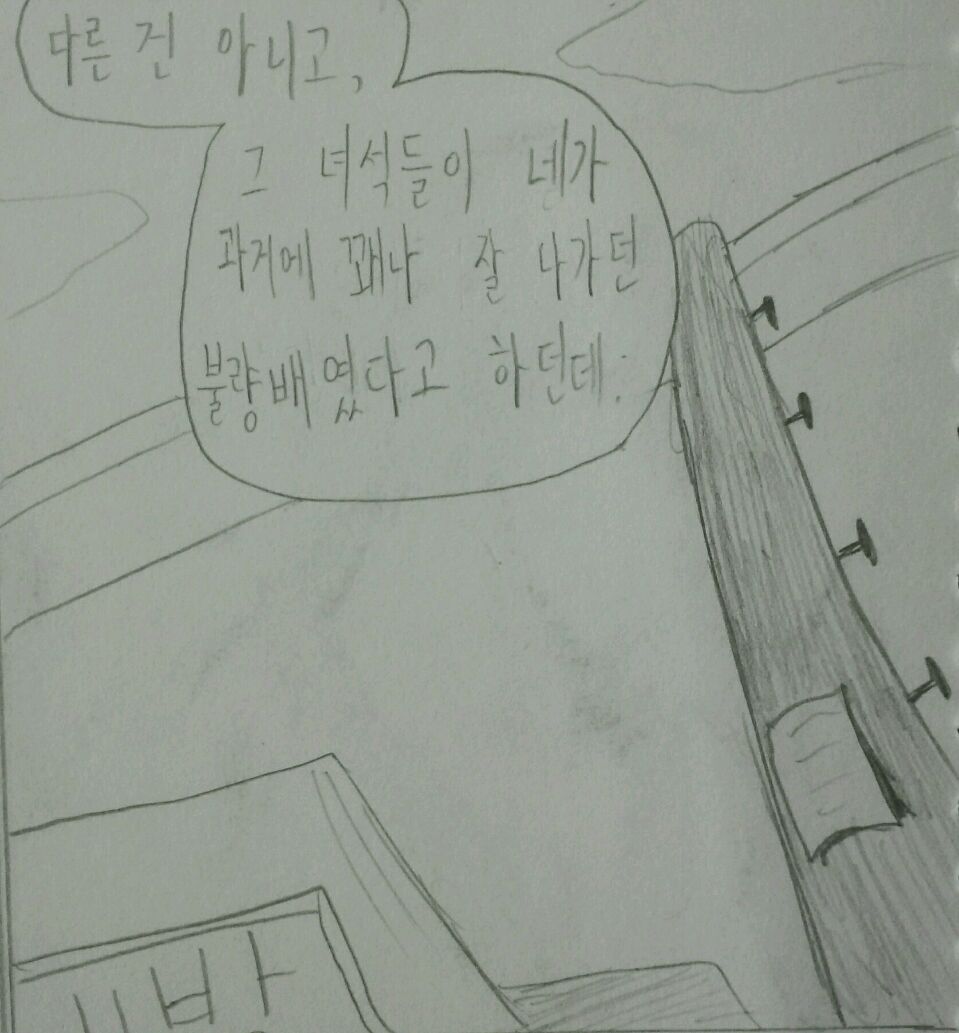 다른 건 아니고,
그 녀석들이 네가
과거에 꽤나 잘 나가던
불량배였다고 하던데.